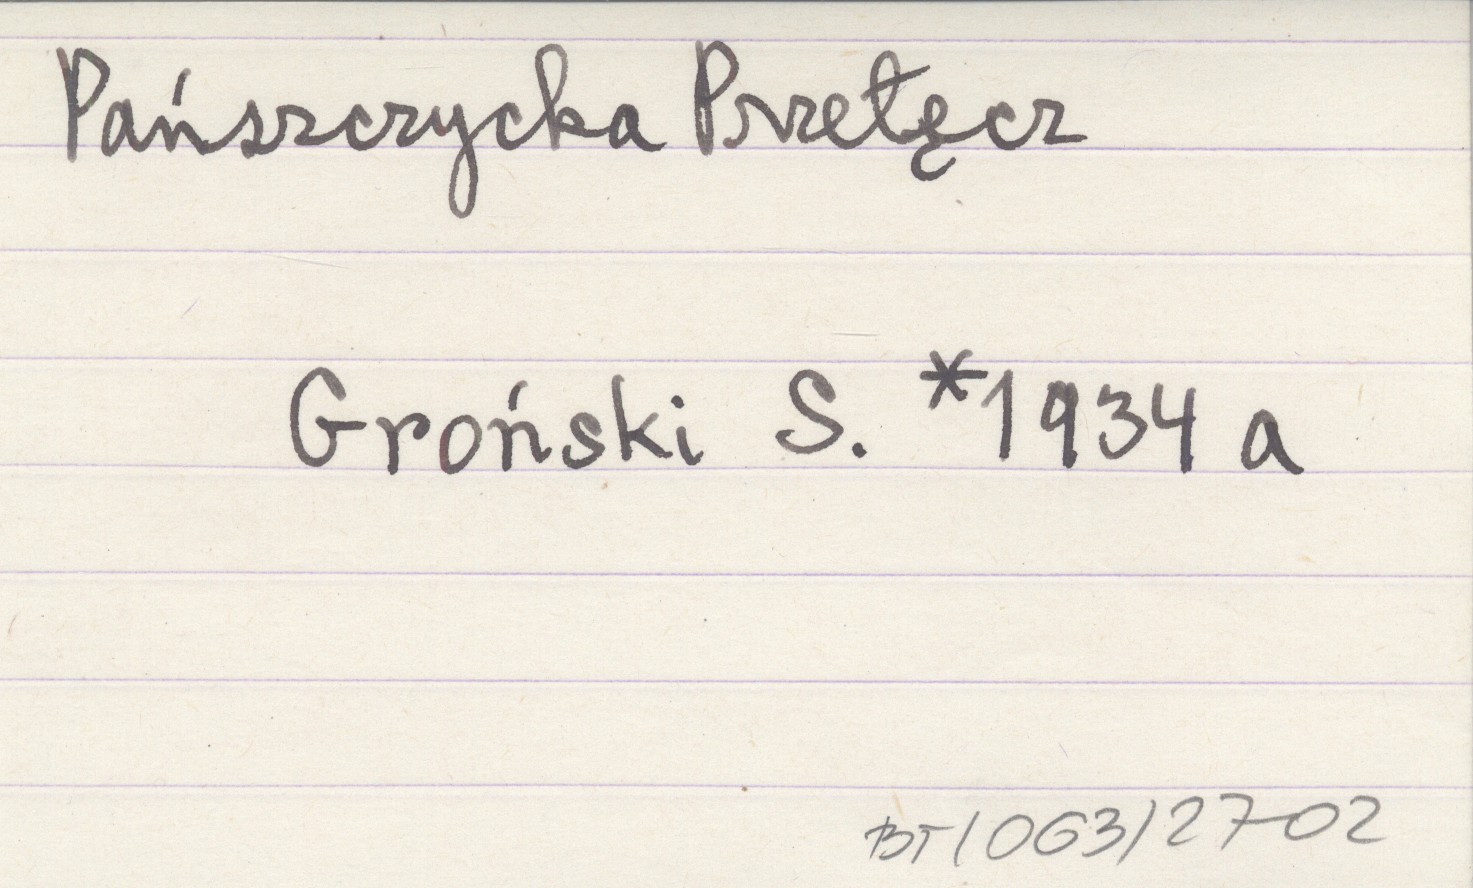 Pańszczycka Przełęcz
Groński S. *1934 a
BT/OG3/2702